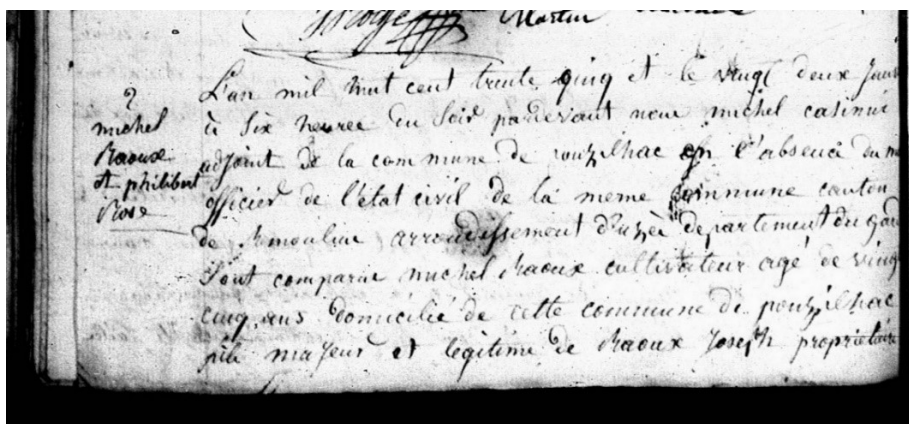 Martin
2
michel
Raoux
et philibert
Rose
L'an mil huit cent trente cinq et le vingt deux
à six heures du soir pardevant nous michel casimir
adjoint de la commune de pouzilhac en l'absence du
officier de l'état civil de la meme commune canton
de Remoulin arrondissement d'uzès departement du gard
Sont comparu michel Raoux cultivateur agé de vingt
cinq ans domicilié de cette commune de pouzilhac
fils majeur et legitime de Raoux Joseph proprietaire